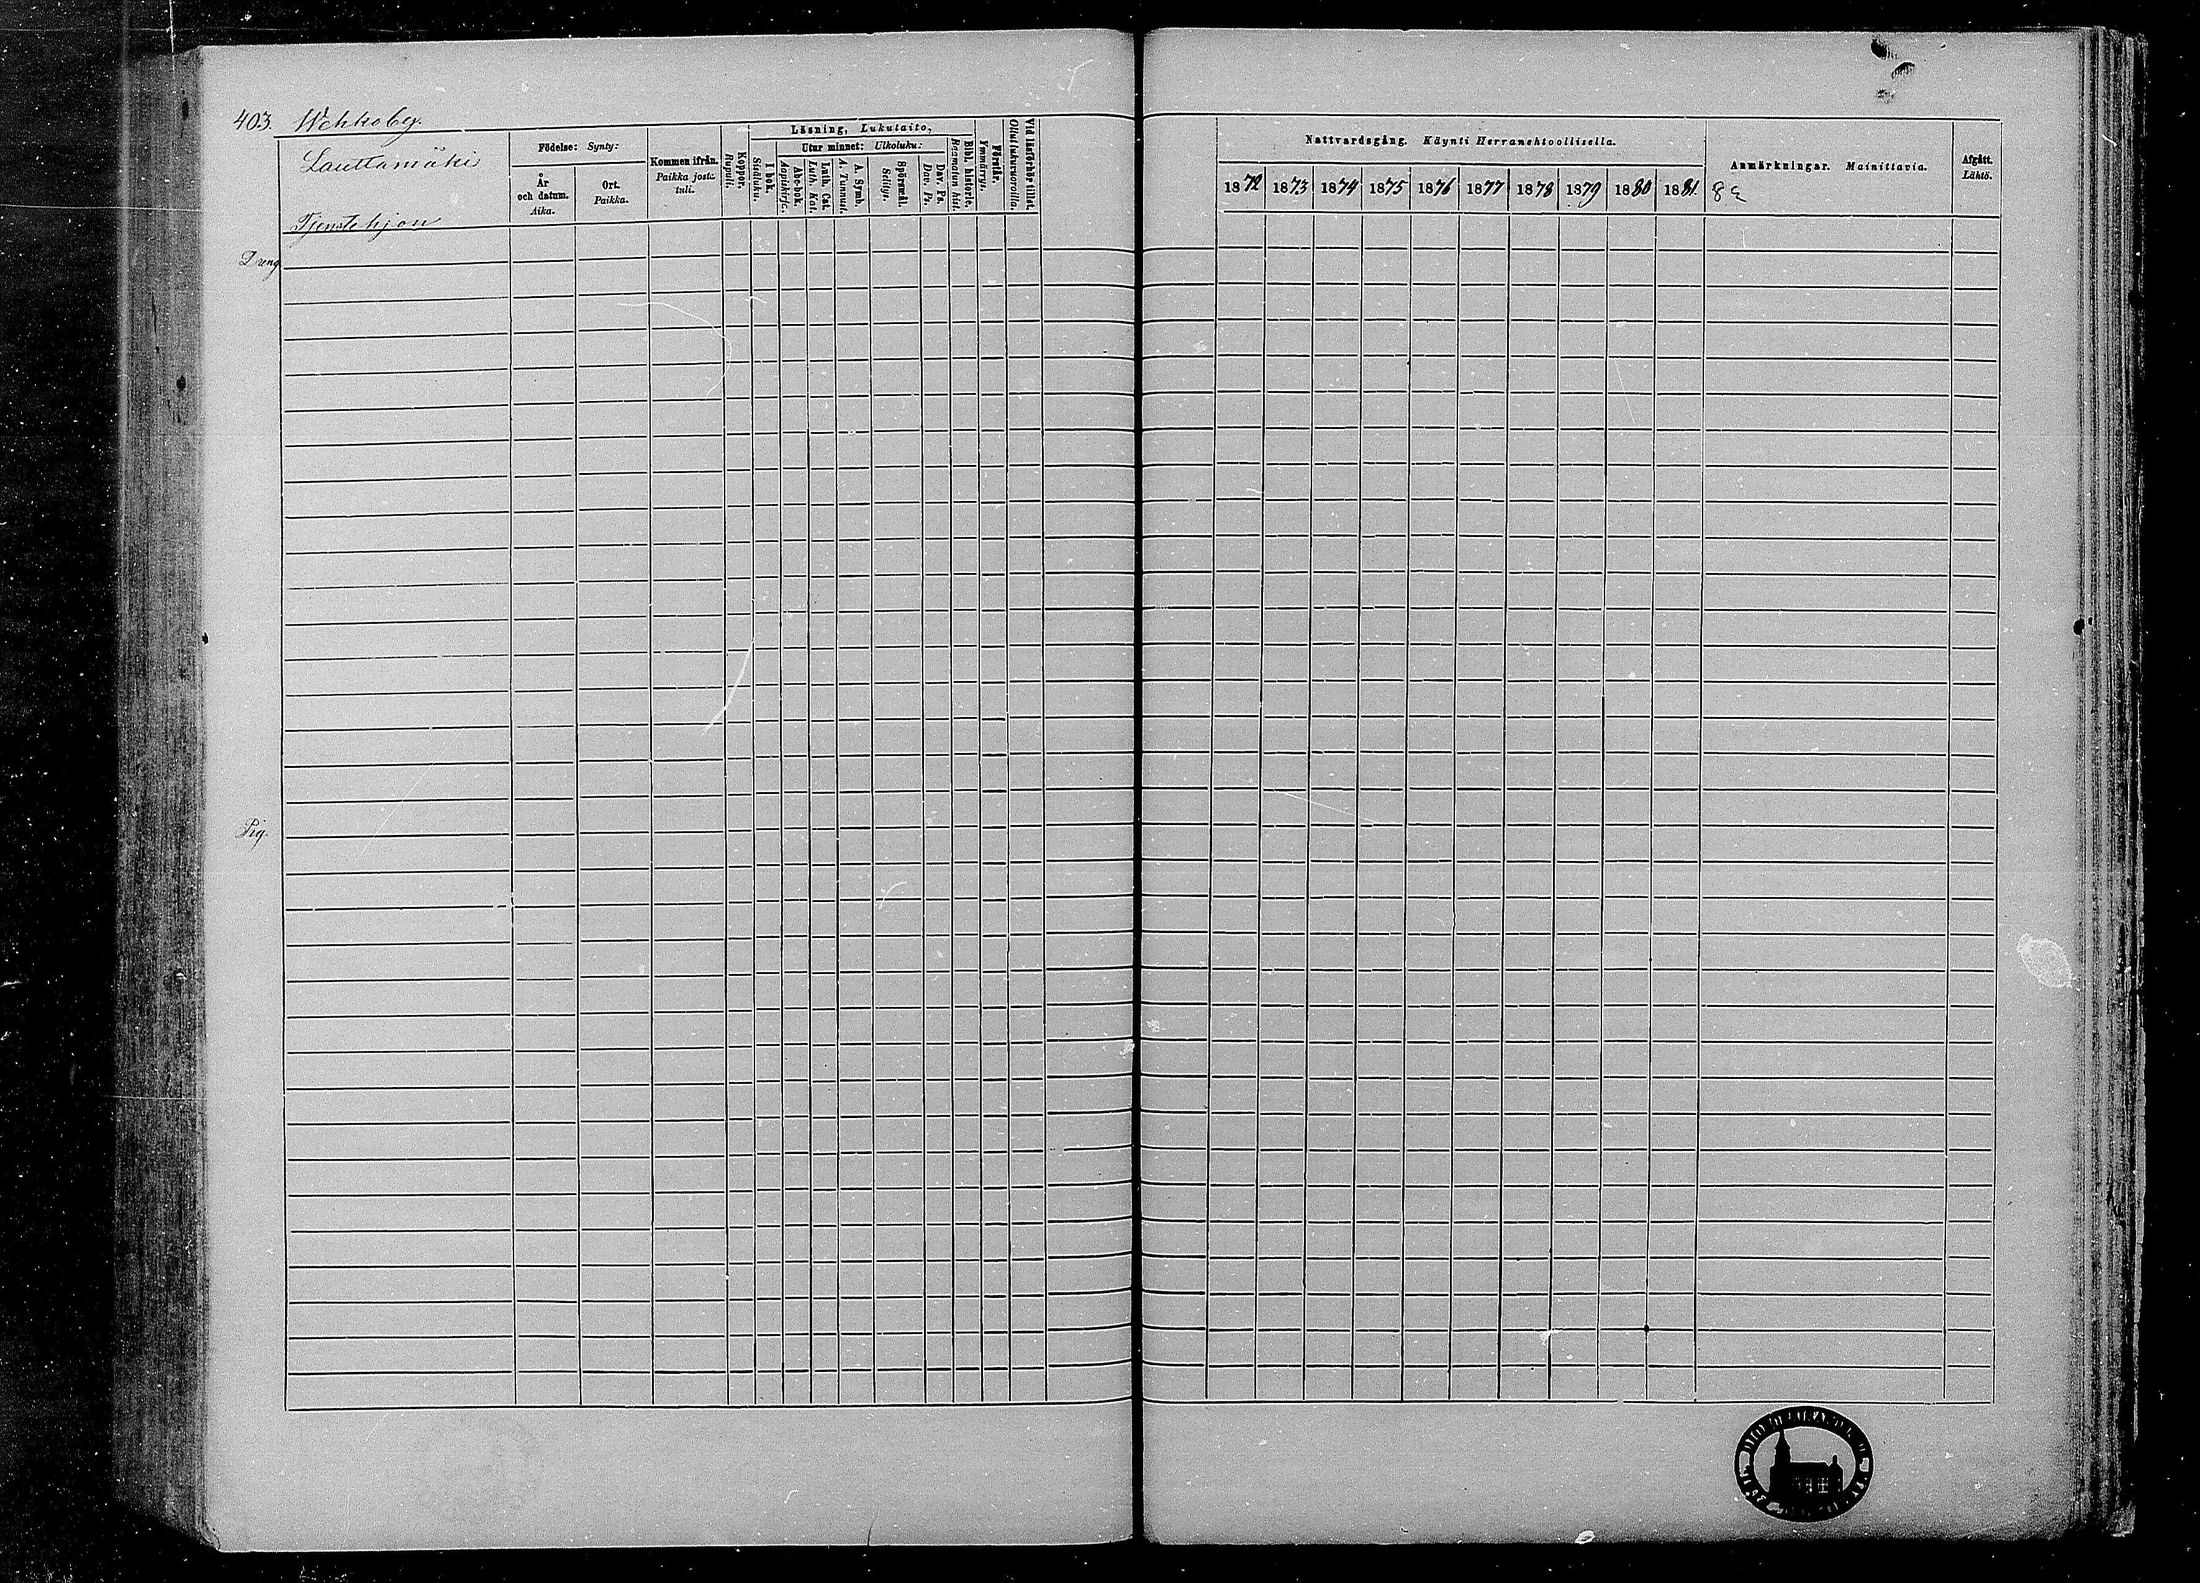 403. Wehkoby.
Lauttamäki
Tjenstehjon
Dreng
Pig.
Födelse: Synty:
År och datum. Aika.
Ort. Paikka.
Kommen ifrån. Paikka josta tuli.
Koppor. Rupuli.
Läsning, Lukutaito,
I bok. Sisäluku.
Utur minnet: Ulkoluku:
Abc-bok. Aapiskirja.
Luth. Cat. Luth. Kat.
A. Symb. A. Tunnust.
Spörsmål. Selitys.
Dav. Ps. Dav. Ps.
Bibl. historie. Raamatun hist.
Förstår. Ymmärrys.
Vid läsförhör tillst. Ollut lukuvuoroilla.
Nattvardsgång. Käynti Herranehtoollisella.
1872 1873 1874 1875 1876 1877 1878 1879 1880 1881 82
Anmärkningar. Mainittavia.
Afgått. Lähtö.